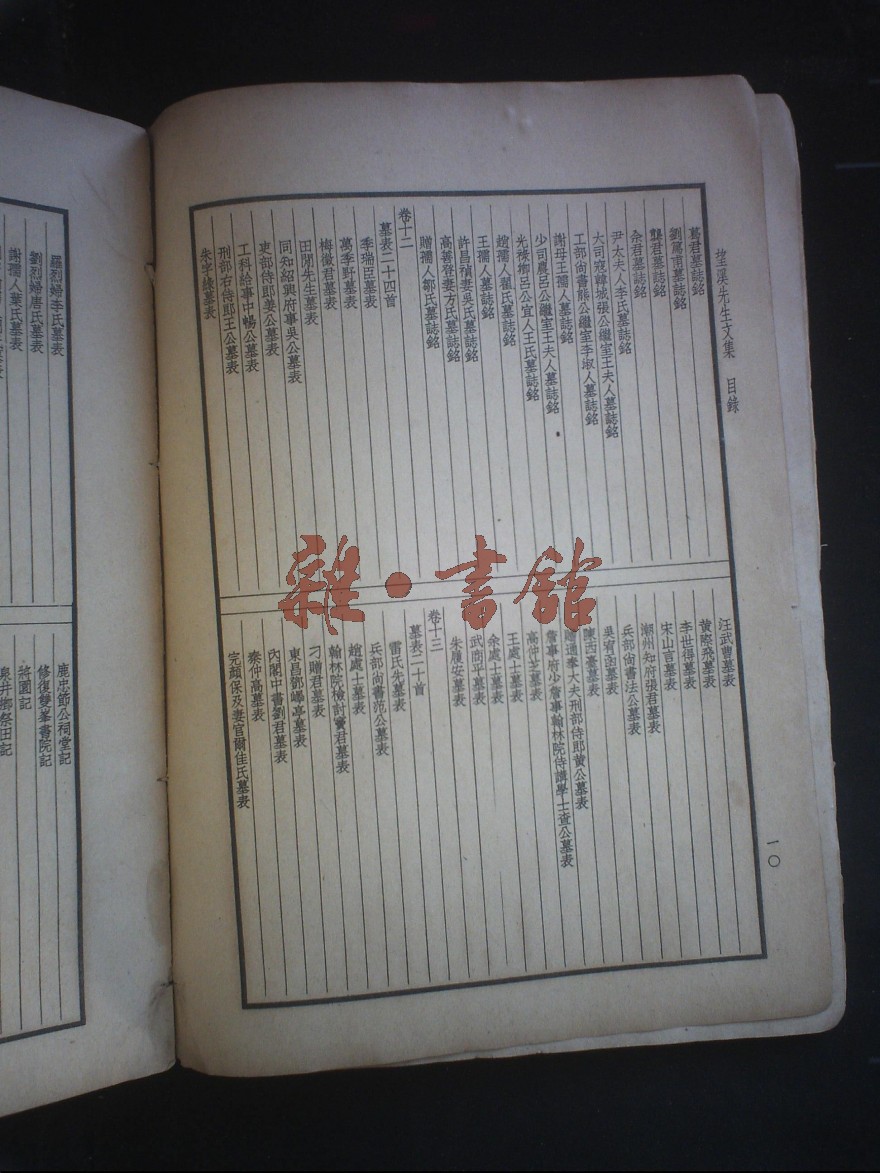 望溪先生文集 目錄
葛君墓誌銘
劉篤甫墓誌銘
龔君墓誌銘
余君墓誌銘
尹太夫人李氏墓誌銘
大司寇韓城張公繼室王夫人墓誌銘
工部尚書熊公繼室李淑人墓誌銘
謝母王孺人墓誌銘
少司農呂公繼室王夫人墓誌銘
光祿卿呂公宜人王氏墓誌銘
趙孺人翟氏墓誌銘
王孺人墓誌銘
許昌禎妻吳氏墓誌銘
高善登妻方氏墓誌銘
贈孺人鄒氏墓誌銘
卷十二
墓表二十四首
季瑞臣墓表
萬季野墓表
梅徵君墓表
田閒先生墓表
同知紹興府事吳公墓表
吏部侍郎姜公墓表
工科給事中暢公墓表
刑部右侍郎王公墓表
朱字綠墓表
汪武曹墓表
黃際飛墓表
李世得墓表
宋山言墓表
潮州知府張君墓表
兵部尚書法公墓表
吳宥函墓表
陳西臺墓表
贈通奉大夫刑部侍郎黃公墓表
詹事府少詹事翰林院侍講學士查公墓表
高仲芝墓表
王處士墓表
余處士墓表
武商平墓表
朱履安墓表
卷十三
墓表二十首
雷氏先墓表
兵部尚書范公墓表
趙處士墓表
翰林院檢討竇君墓表
刁贈君墓表
東昌鄧嶧亭墓表
內閣中書劉君墓表
秦仲高墓表
完顏保及妻官爾佳氏墓表
一〇
羅烈婦李氏墓表
劉烈婦唐氏墓表
謝孺人葉氏墓表
鹿忠節公祠堂記
修復雙峯書院記
將園記
泉井鄉祭田記
雜·書館